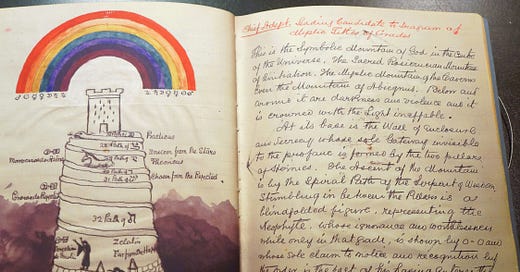 Practicus
from the Stars
Theoricus
32 Path of
Zelator
Chief Adept, leading Candidate to Diagram of
Mystic Titles of Grades
This is the Symbolic Mountain of God in the Centre
of the Universe. The Sacred Rosicrucian Mountain
of Initiation. The Mystic Mountain of the Caverns
even the Mountain of Abiegnus. Below and
around it are darkness and silence and it
is crowned with the Light ineffable.
At its base is the Wall of Enclosure
and Secrecy whose sole Gateway invisible
to the profane is formed by the two pillars
of Hermes. The Ascent of the Mountain
is by the Spiral Path of the Serpent of Wisdom
Stumbling on between the Pillars is a
blindfolded figure, representing the
Neophyte, whose ignorance and worthlessness
while only in that grade, is shown by 0-0 and
whose sole claim to notice and recognition by
the Order is the fact of his having entered the